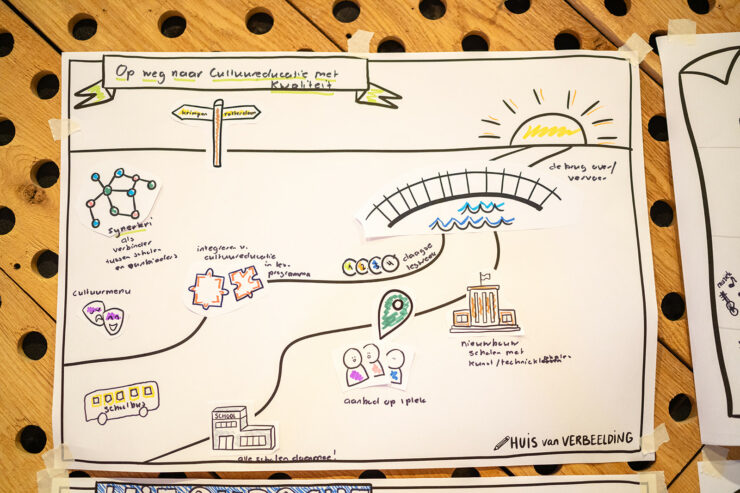 Op weg naar Cultuureducatie met
Kwaliteit
Krimpen
Rotterdam
de brug over/
vervoer
Synerkri
als
verbinder
tussen scholen
en aanbieders
integreren v.
cultuureducatie
in les-
programma
1 2 3 4
daagse
lesweek
cultuurmenu
nieuwbouw
scholen met
kunst/
aanbod op 1 plek
schoolbus
SCHOOL
alle scholen
HUIS van VERBEELDING